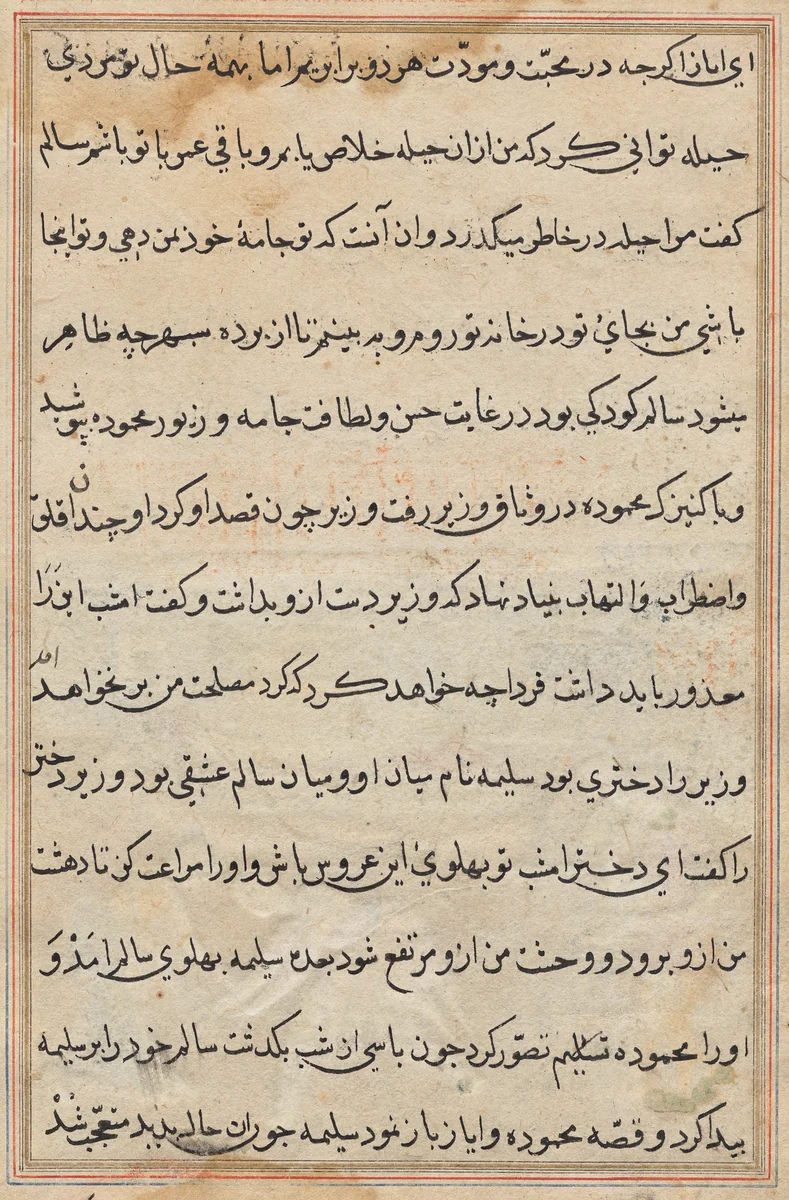 ای ایاز اکرجه در محبّت و مودّت هر دو برابریم اما بهمهٔ حال تو مردی
حیله توانی کرد که من از ان حیله خلاص یابم و باقی عمر با تو باشم سالم
کفت مرا حیله در خاطر میکذرد و ان آنست که تو جامهٔ خوذ بمن دهی و تو اینجا
باشی من بجایٔ تو در خانه تو روم و به بینم تا از برده سبهر چه ظاهر
میشود سالم کودکی بود در غایت حسن و لطافت جامه و زیور محموده بپوشید
و با کنیزک محموده در وثاق وزیر رفت وزیر چون قصد او کرد او چندان قلق
واضطراب و التهاب بنیاد نهاد که وزیر دست ازو بداشت و کفت امشب این را
معذور باید داشت فردا چه خواهد کرد که کرد مصلحت من بر نخواهد امد
وزیر را دختری بود سلیمه نام میان او و میان سالم عشقی بود وزیر دختر
را کفت ای دختر امشب تو بهلویٔ این عروس باش و او را مراعت کن تا دهشت
من ازو برود و وحشت من ازو مرتفع شود بعده سلیمه بهلوی سالم امَدْ وَ
او را محموده تصوّر کرد جون باسی از شب بکدشت سالم خود را بر سلیمه
بیدا کرد و قصّه محموده و ایاز باز نمود سلیمه جون ان حال بدید متعجّب شُدْ